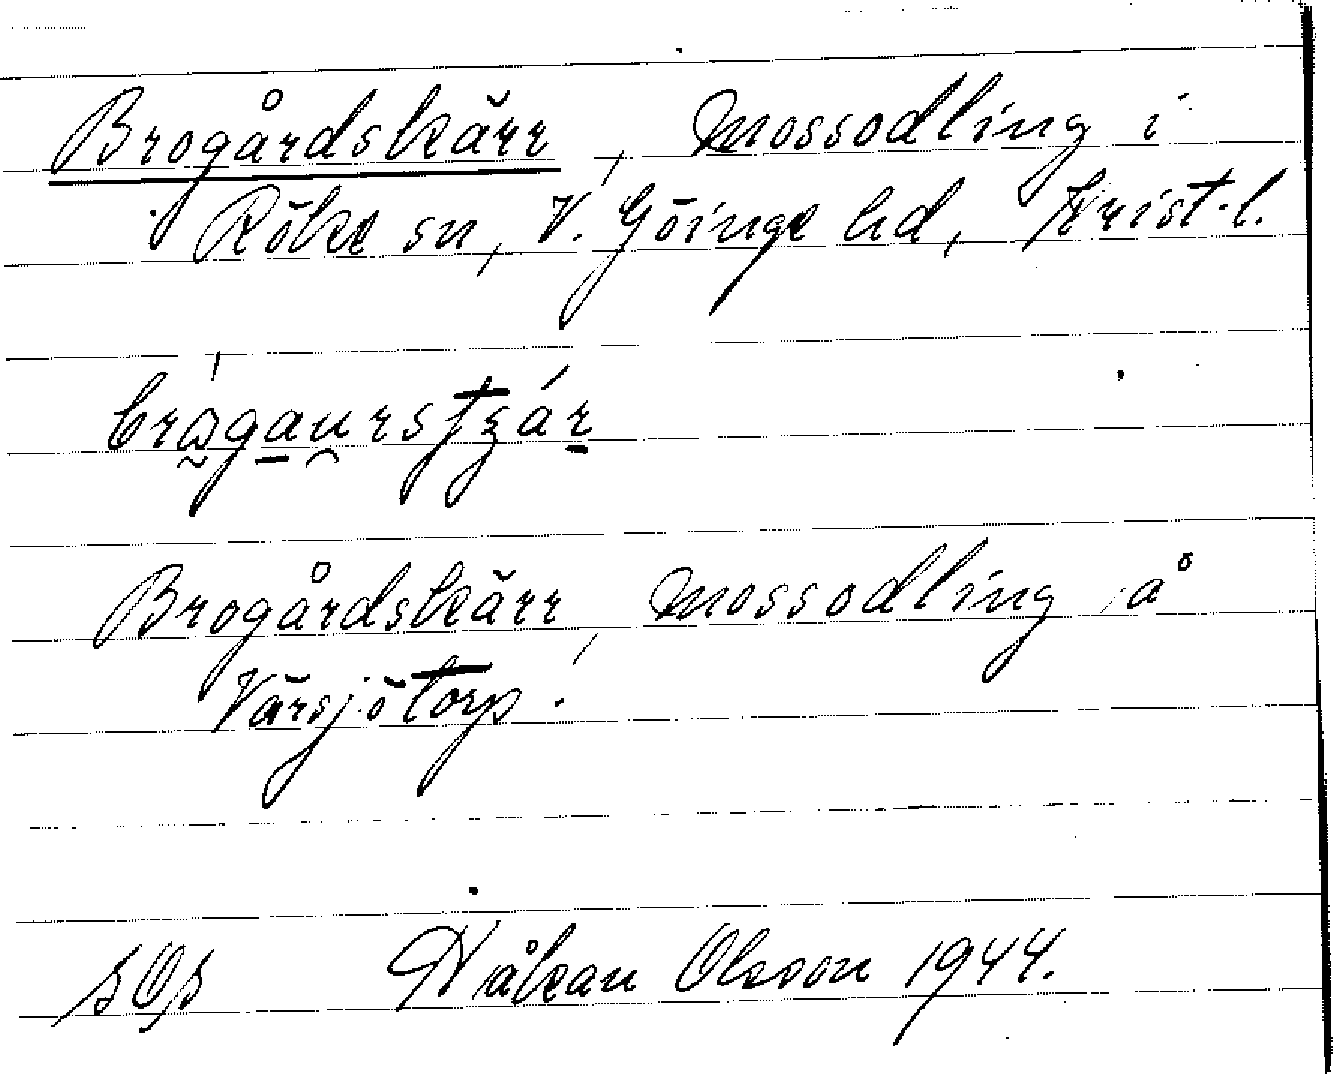 Brogårdskärr, mossodling i
Röke sn, V. Göinge hd, Krist. l.
Brogårdskärr, mossodling å
Värsjötorp.
Håkan Olsson 1944.